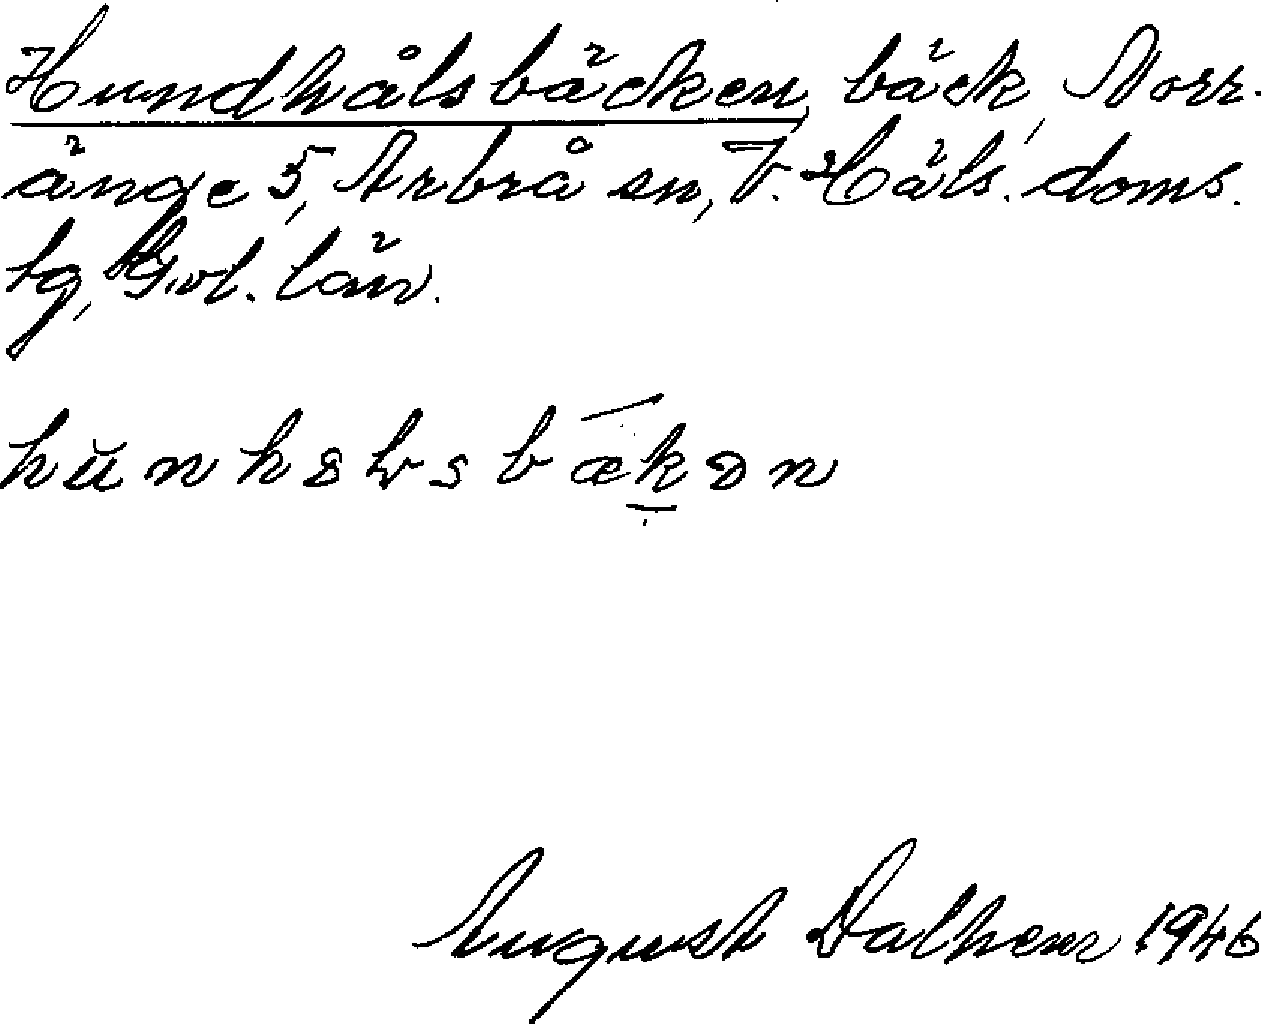 Hundhålsbäcken, bäck, Norr-
änge 5, Arbrå sn, V. Häls. doms.
tg, Gvl. län.
August Dalhem 1946